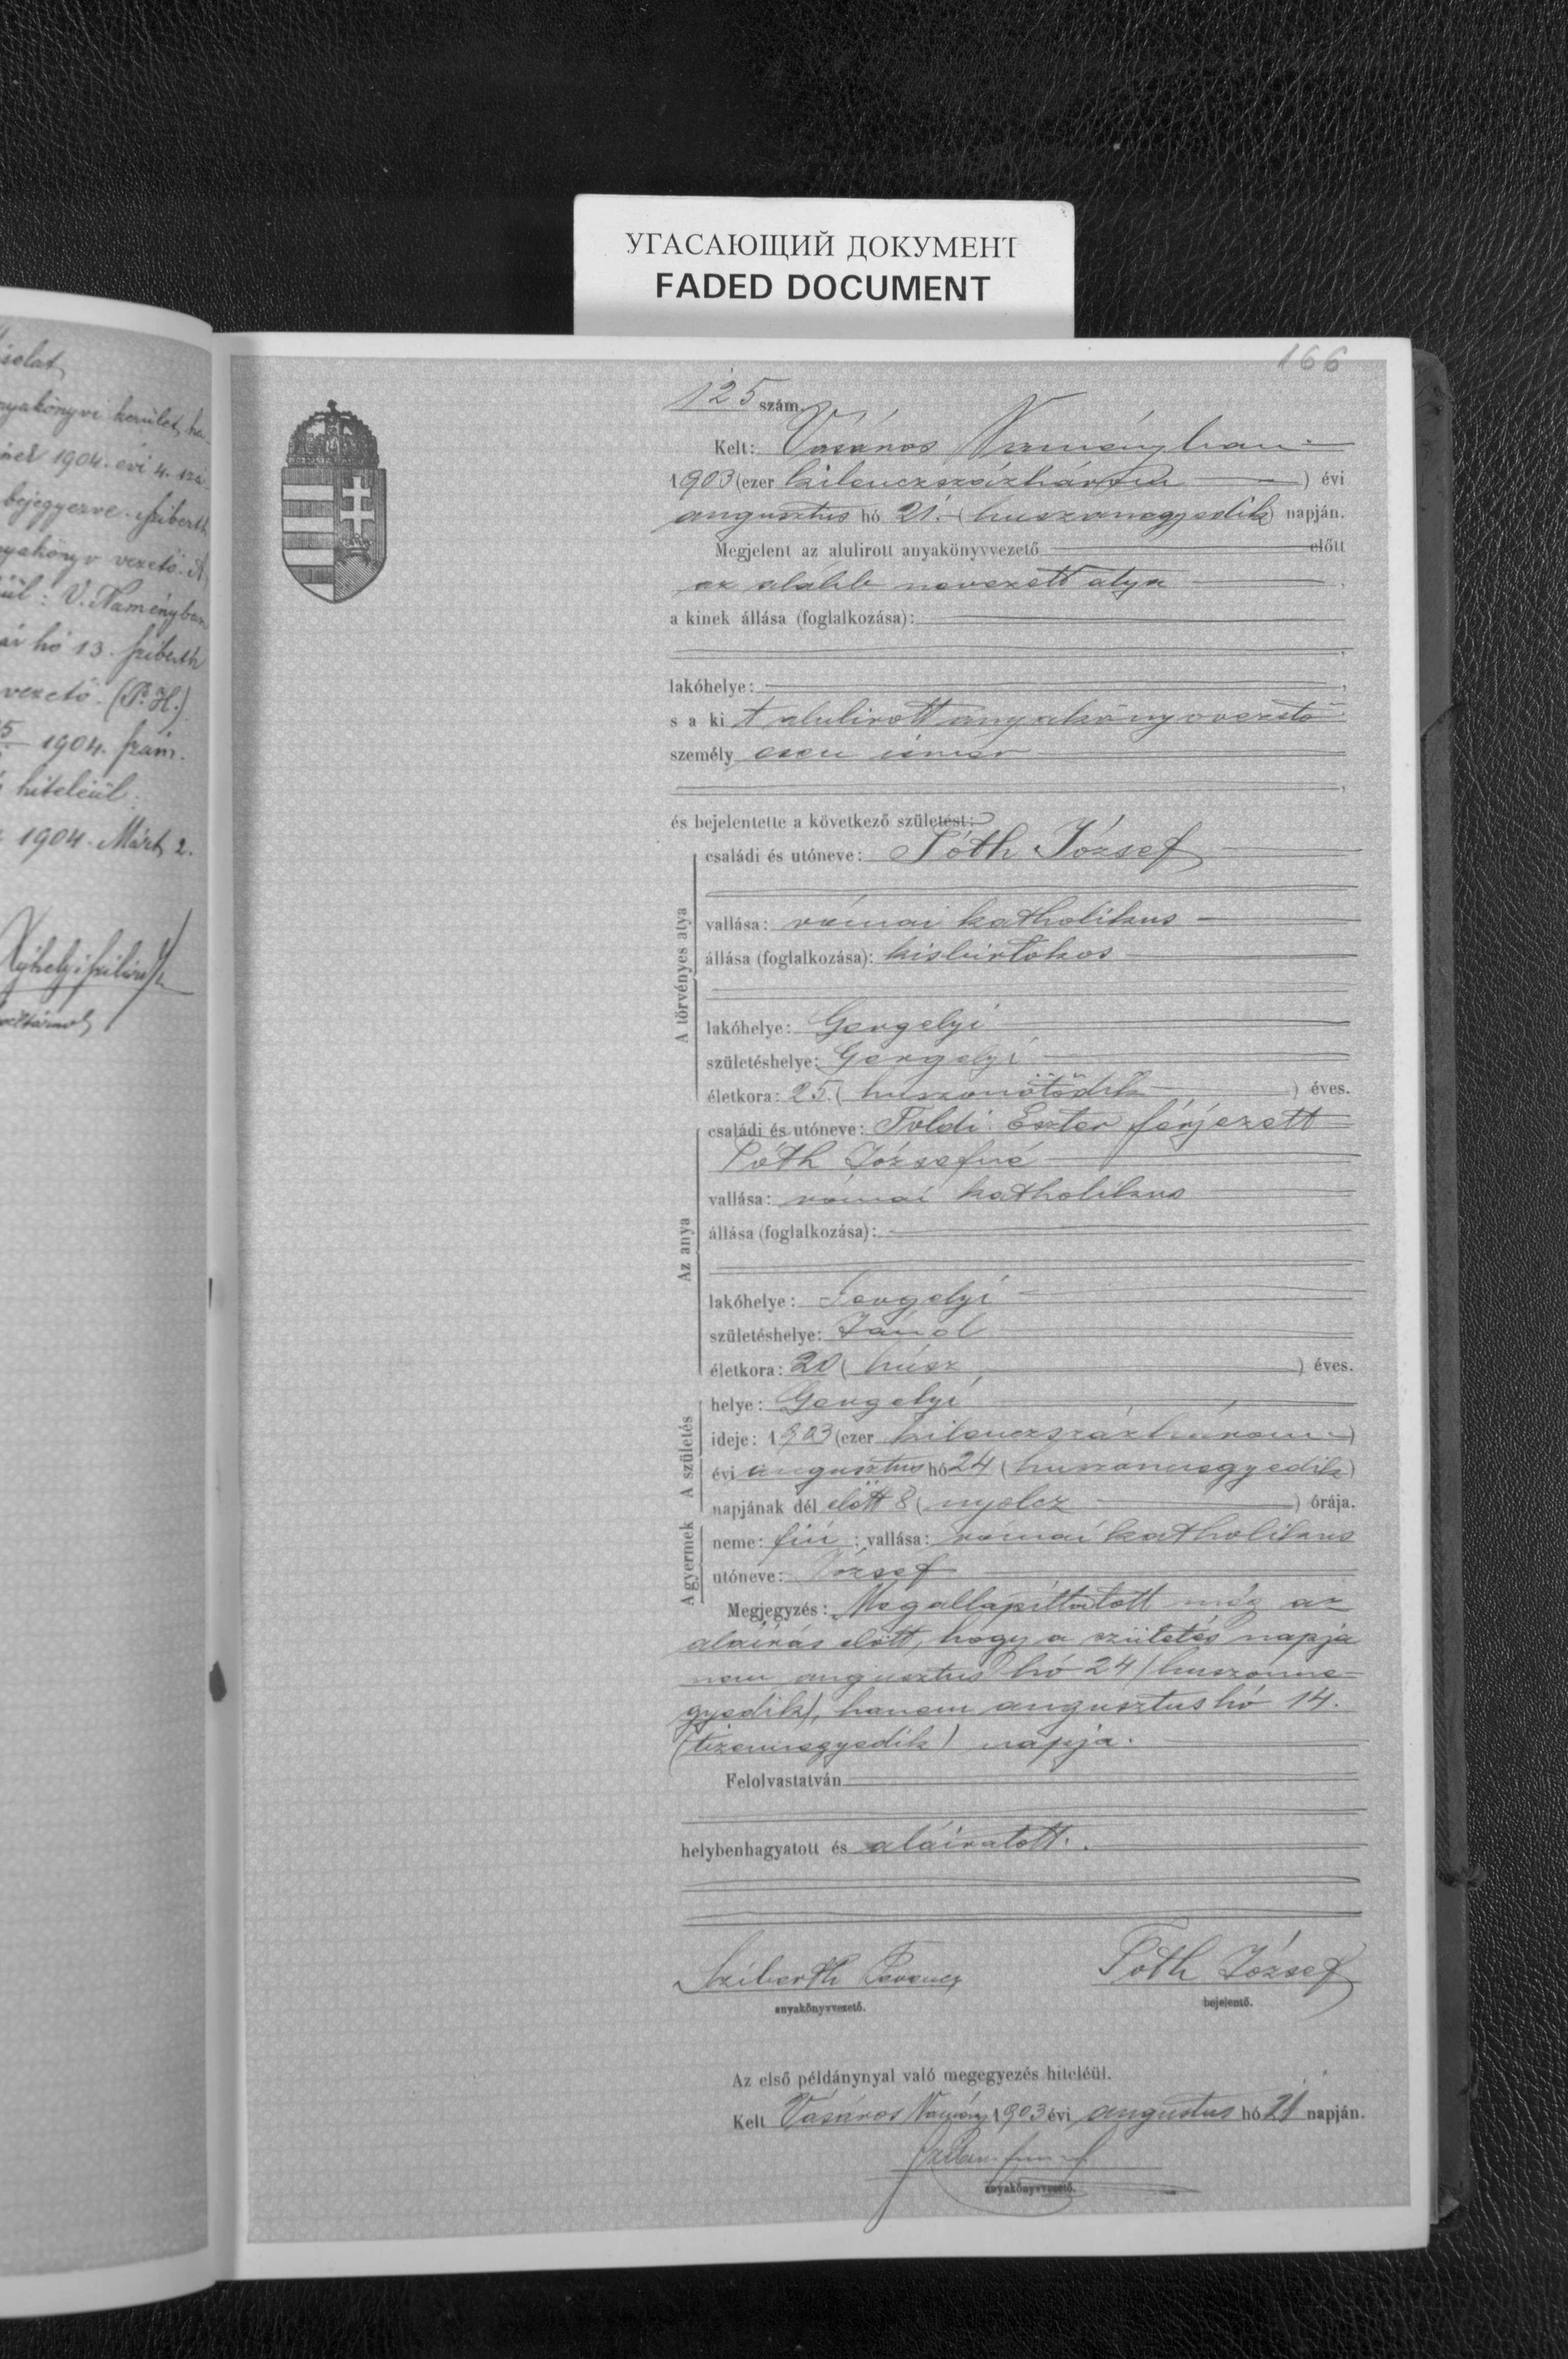 УГАСАЮЩИЙ ДОКУМЕНТ
FADED DOCUMENT
166
solat
nyakönyvi kerület, ha-
1904. évi 4. szá
bejegyezve. Sziberth
nyakönyv vezető.
ül: V. Naményban
ár hó 13. Sziberth
vezető. (P. H.)
1904. szám.
hiteléül:
1904. Márt 2.
125 szám.
Kelt: Vásáros Naményban
1903 (ezer kilenczszázhárom) évi
augusztus hó 21. (huszonegyedik) napján.
Megjelent az alulirott anyakönyvvezető előtt
az alább nevezett atya
a kinek állása (foglalkozása):
lakóhelye:
s a ki t alulirott anyakönyvvezető
személy esen ismer
és bejelentette a következő születést:
A törvényes atya
családi és utóneve: Tóth József
vallása: római katholikus
állása (foglalkozása): kisbirtokos
lakóhelye: Gergelyi
születéshelye: Gergelyi
életkora: 25. (huszonötödik) éves.
Az anya
családi és utóneve: Földi Eszter férjezett
Tóth Józsefné
vallása: római katholikus
állása (foglalkozása):
lakóhelye: Gergelyi
születéshelye: Jánd
életkora: 20 (húsz) éves.
A születés
helye: Gergelyi
ideje: 1903 (ezer kilenczszázhárom)
évi augusztus hó 24 (huszonnegyedik)
napjának dél előtt 8 (nyolcz) órája.
A gyermek
neme: fiú; vallása: római katholikus
utóneve: József
Megjegyzés: Megallapíttatott még az
aláirás előtt, hogy a születés napja
nem augusztus hó 24 (huszonne-
gyedik), hanem augusztus hó 14.
(tizennegyedik) napja.
Felolvastatván
helybenhagyatott és aláiratott.
Sziberth Ferencz Tóth József
anyakönyvvezető. bejelentő.
Az első példánynyal való megegyezés hiteléül.
Kelt Vásáros Namény 1903 évi augustus hó 21 napján.
anyakönyvvezető.